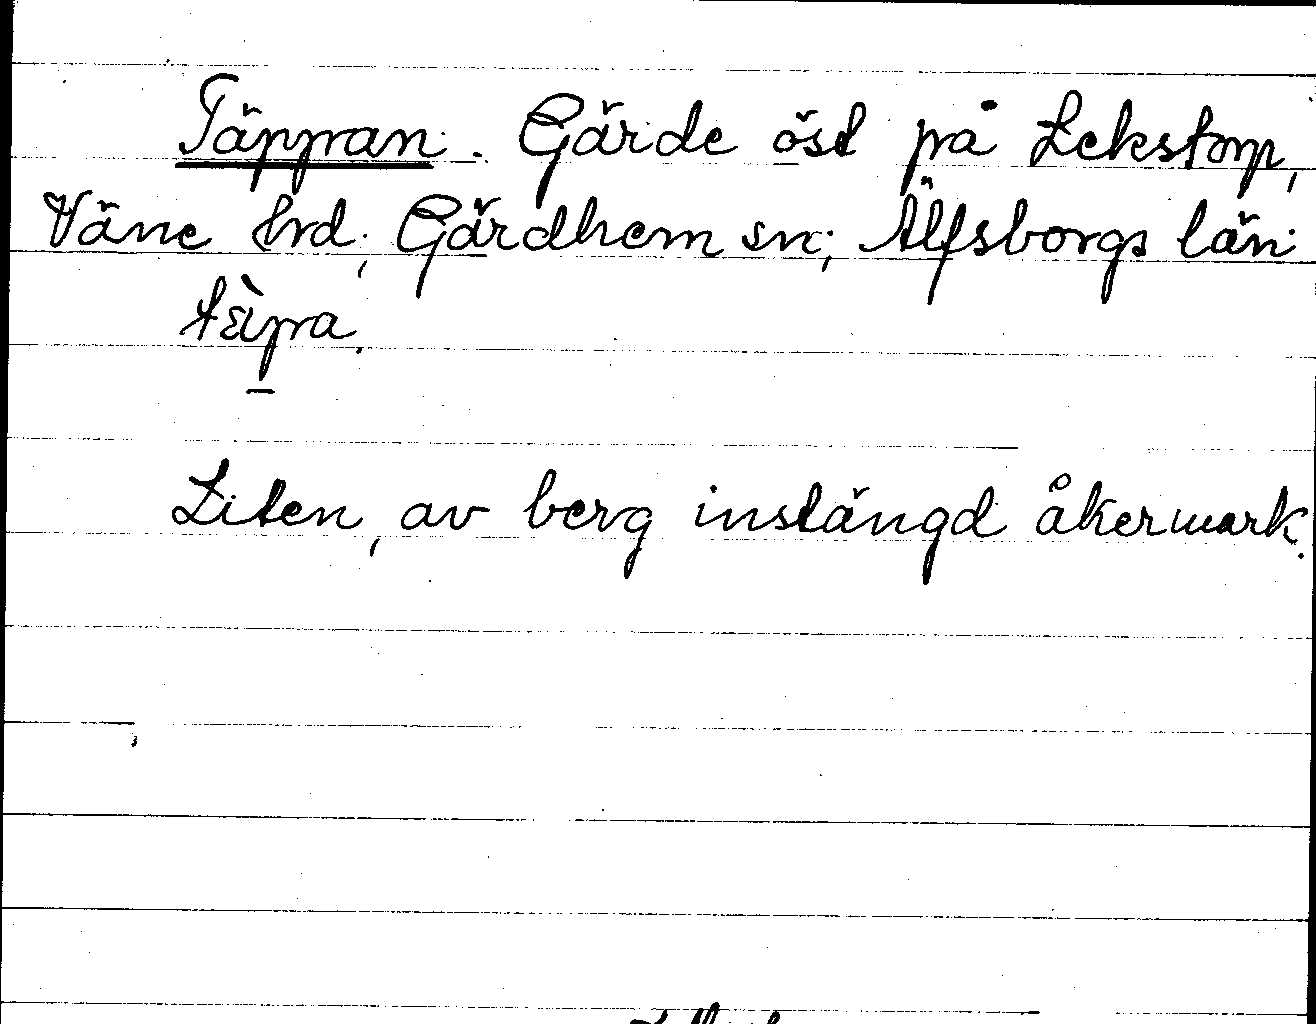 Täppran. Gärde öst på Lekstorp,
Väne hrd; Gärdhem sn; Älfsborgs län
Liten, av berg instängd åkermark.